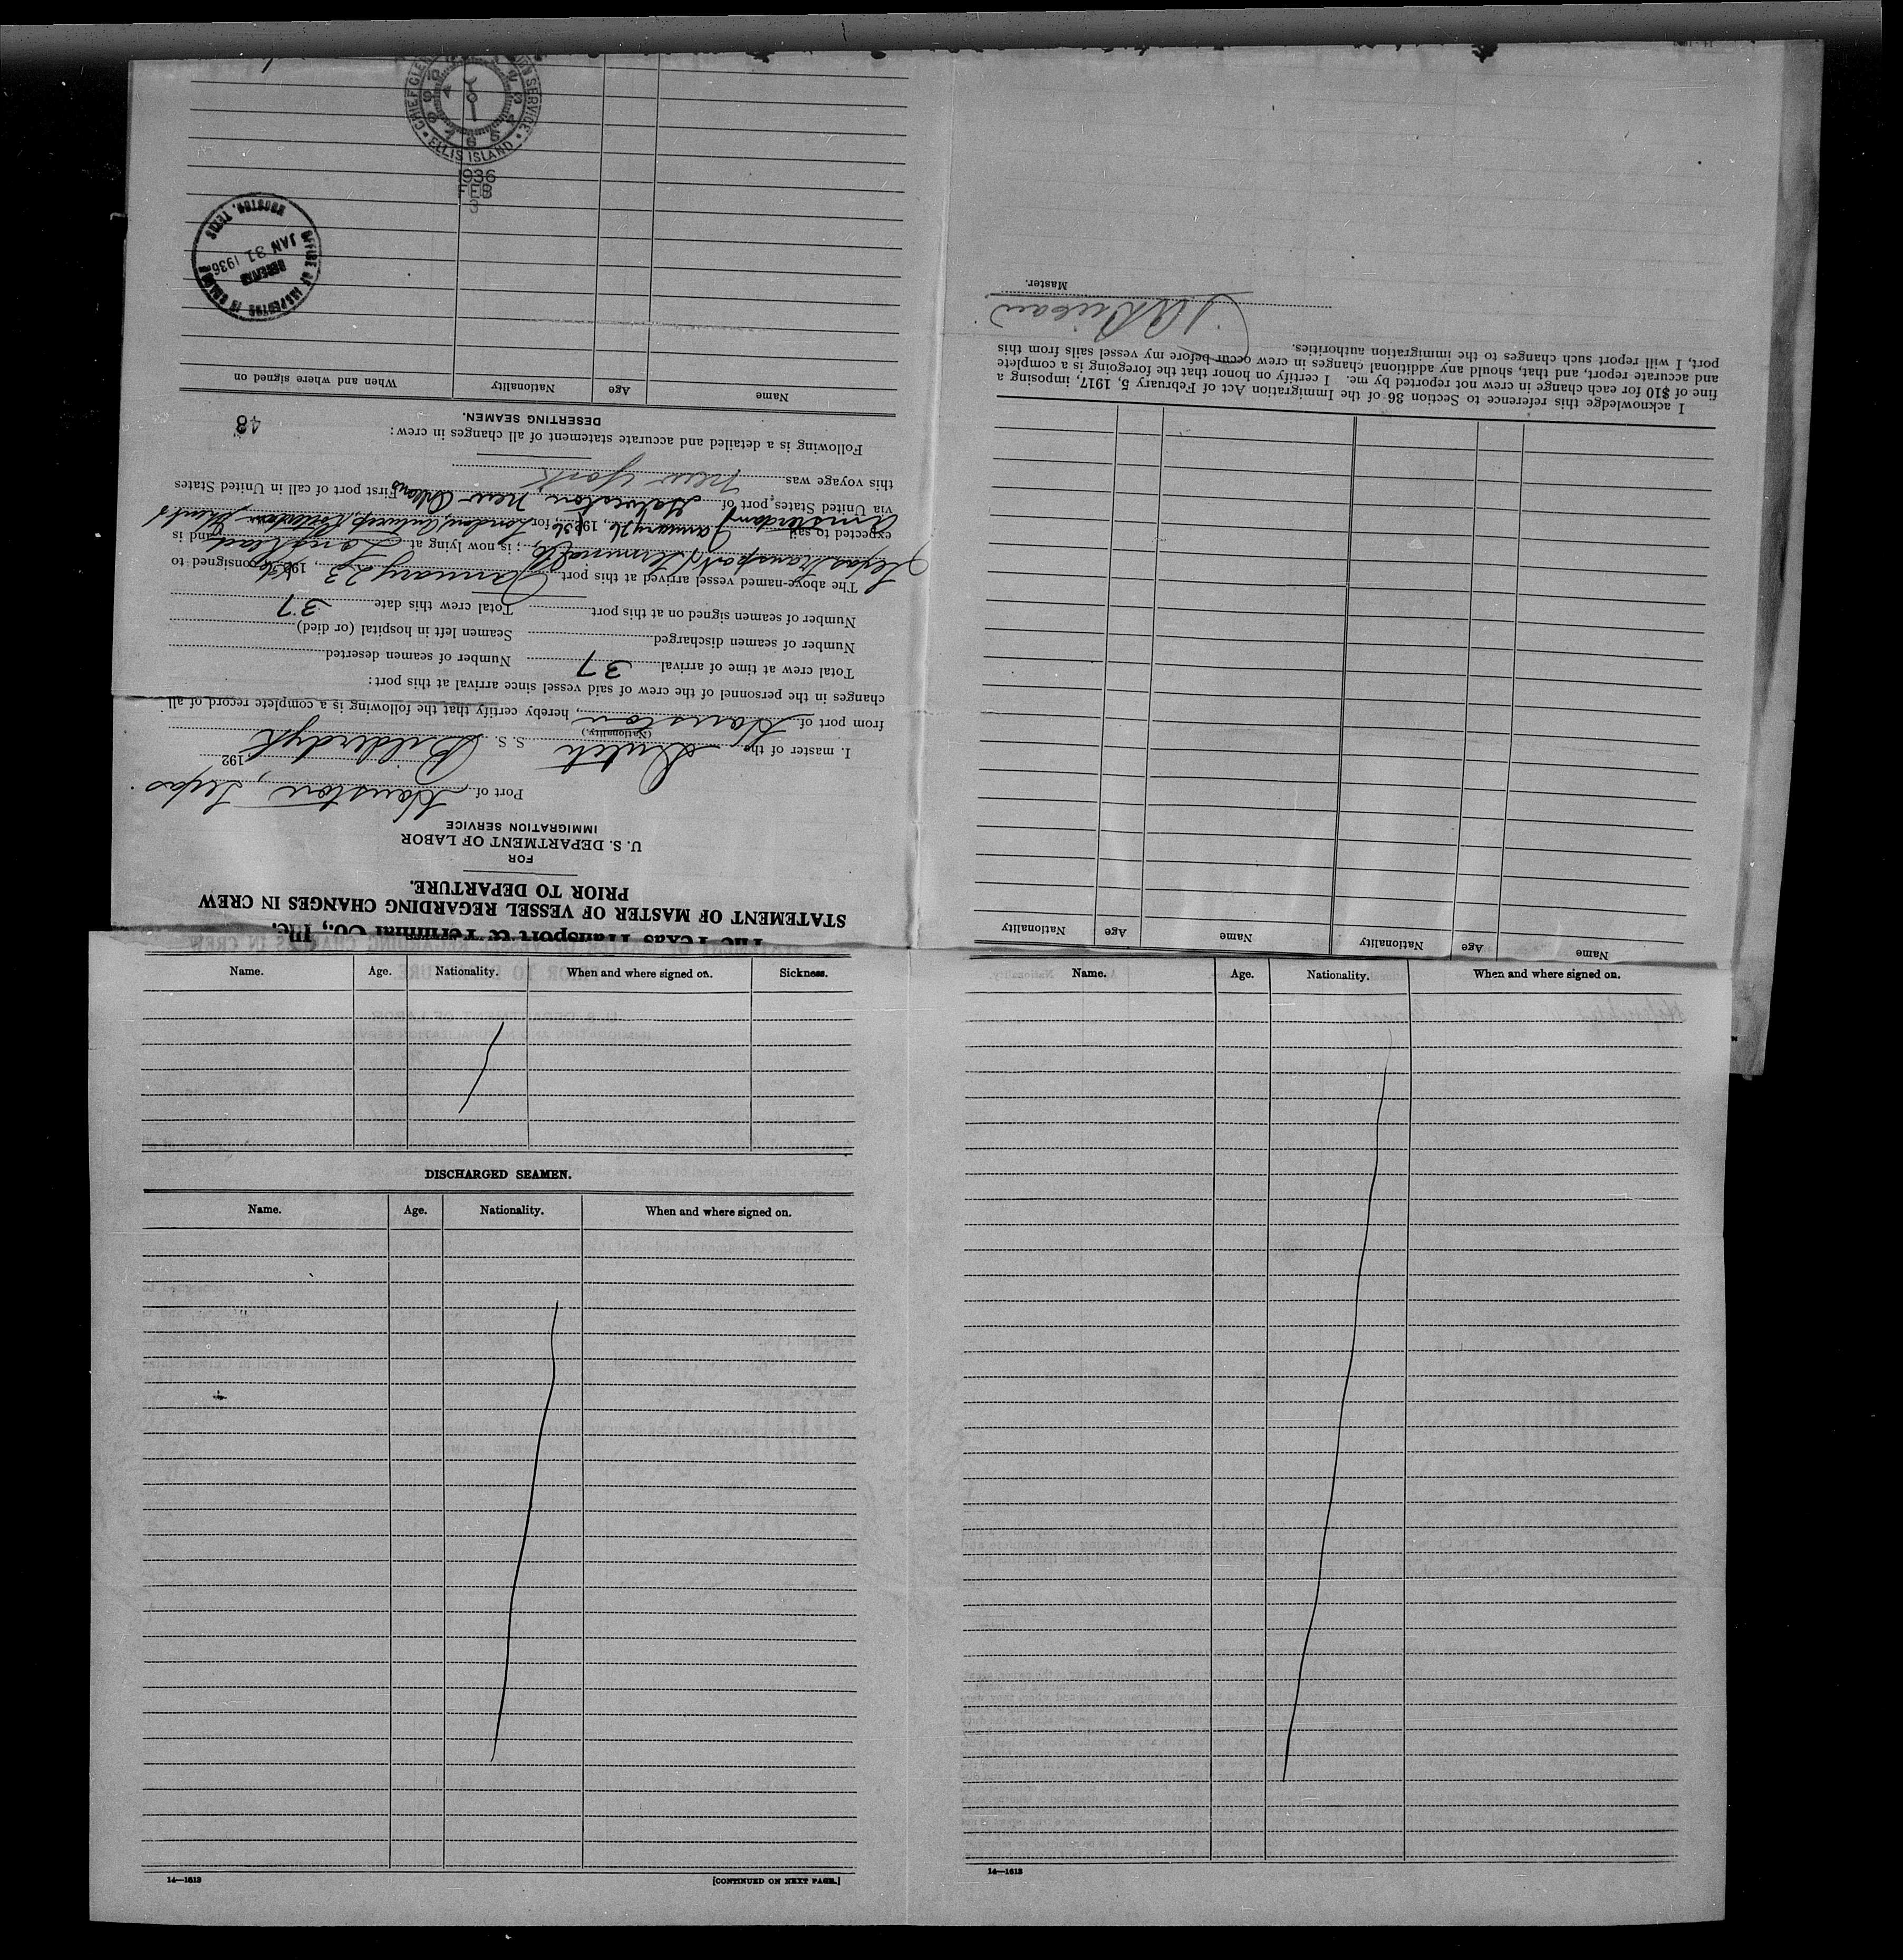 The Texas Transport & Terminal Co., Inc.
STATEMENT OF MASTER OF VESSEL REGARDING CHANGES IN CREW
PRIOR TO DEPARTURE.
FOR
U. S. DEPARTMENT OF LABOR
IMMIGRATION SERVICE
Port of Houston, Texas.
192
I, master of the Dutch S. S. Bilderdyk
(Nationality)
from port of Houston, hereby certify that the following is a complete record of all
changes in the personnel of the crew of said vessel since arrival at this port:
Total crew at time of arrival 37 Number of seamen deserted
Number of seamen discharged Seamen left in hospital (or died)
Number of seamen signed on at this port Total crew this date 37
The above-named vessel arrived at this port January 23, 1936 consigned to
Texas Transport & Terminal Co,; is now lying at Long Reach and is
expected to sail January 26, 1936, for London, Antwerp, Rotterdam
Amsterdam
via United States port of Galveston, New Orleans First port of call in United States
this voyage was New York
Following is a detailed and accurate statement of all changes in crew: 48
DESERTING SEAMEN.
Name Age Nationality When and where signed on
OFFICE OF INSPECTOR IN CHARGE
RECEIVED
JAN 31 1936
HOUSTON, TEXAS
ELLIS ISLAND
1936
FEB
3
Name Age Nationality Name Age Nationality
I acknowledge this reference to Section 36 of the Immigration Act of February 5, 1917, imposing a
fine of $10 for each change in crew not reported by me. I certify on honor that the foregoing is a complete
and accurate report, and that, should any additional changes in crew occur before my vessel sails from this
port, I will report such changes to the immigration authorities.
Master.
Name. Age. Nationality. When and where signed on. Sickness.
DISCHARGED SEAMEN.
Name. Age. Nationality. When and where signed on.
14—1613 [CONTINUED ON NEXT PAGE.]
Name. Age. Nationality. When and where signed on.
14—1613